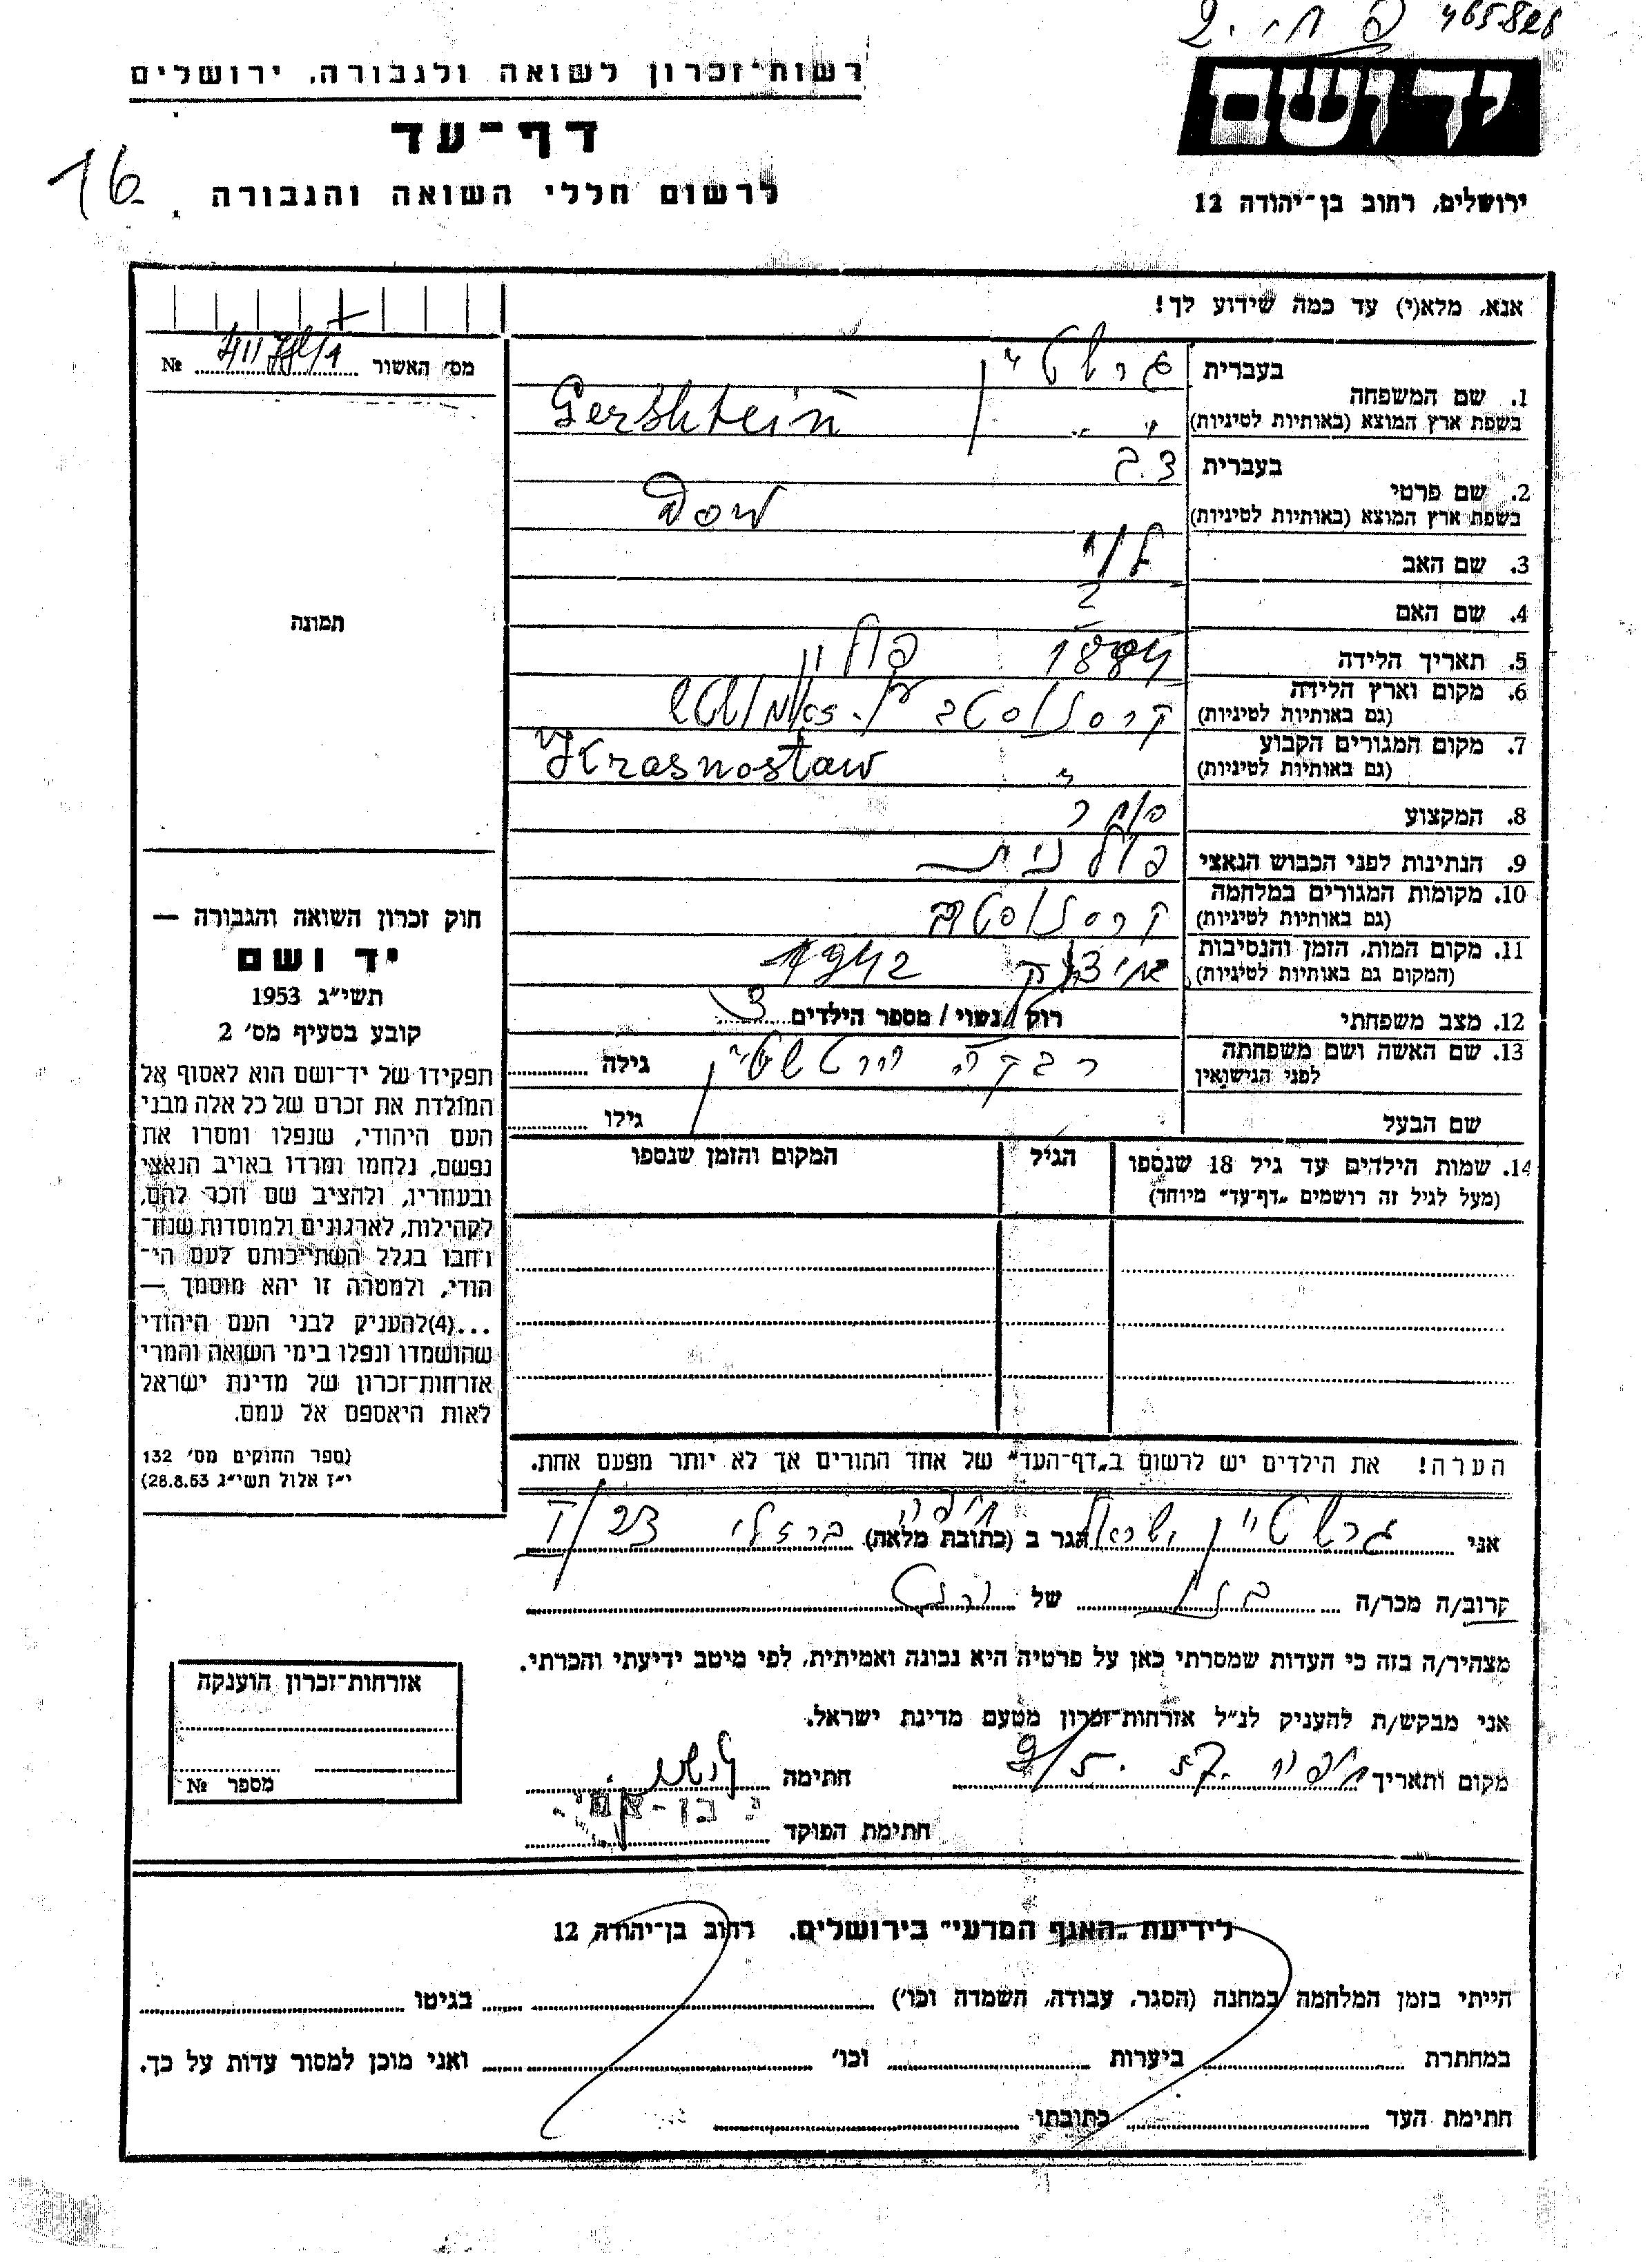 465826
רשות־זכרון לשואה ולגבורה, ירושלים
יד ושם
דף־עד
16
לרשום חללי השואה והגבורה
ירושלים, רחוב בן־יהודה 12
אנא, מלא(י) עד כמה שידוע לך!
מס׳ האשור № 
1. שם המשפחה
בעברית גרשטיין
בשפת ארץ המוצא (באותיות לטיניות) Gershtein
2. שם פרטי
בעברית דב
בשפת ארץ המוצא (באותיות לטיניות) Dow
3. שם האב לוי
4. שם האם
5. תאריך הלידה 1884
6. מקום וארץ הלידה פולין
(גם באותיות לטיניות) קרסנוסטב
7. מקום המגורים הקבוע Krasnostaw
(גם באותיות לטיניות) "
8. המקצוע סוחר
9. הנתינות לפני הכבוש הנאצי פולנית
10. מקומות המגורים במלחמה
(גם באותיות לטיניות) קרסנוסטב
11. מקום המות, הזמן והנסיבות 1942
(המקום גם באותיות לטיניות)
12. מצב משפחתי רוק / נשוי / מספר הילדים 3
13. שם האשה ושם משפחתה רבקה גילה
לפני הנישואין
שם הבעל גילו
14. שמות הילדים עד גיל 18 שנספו הגיל המקום והזמן שנספו
(מעל לגיל זה רושמים „דף־עד״ מיוחד)
הערה! את הילדים יש לרשום ב„דף־העד״ של אחד ההורים אך לא יותר מפעם אחת.
תמונה
חוק זכרון השואה והגבורה —
יד ושם
תשי״ג 1953
קובע בסעיף מס׳ 2
תפקידו של יד־ושם הוא לאסוף אל
המולדת את זכרם של כל אלה מבני
העם היהודי, שנפלו ומסרו את
נפשם, נלחמו ומרדו באויב הנאצי
ובעוזריו, ולהציב שם וזכר להם,
לקהילות, לארגונים ולמוסדות שנח־
רבו בגלל השתייכותם לעם הי־
הודי, ולמטרה זו יהא מוסמך —
...(4)להעניק לבני העם היהודי
שהושמדו ונפלו בימי השואה והמרי
אזרחות־זכרון של מדינת ישראל
לאות היאספם אל עמם.
(ספר החוקים מס׳ 132
י״ז אלול תשי״ג 28.8.53)
אני גרשטיין ישראל הגר ב (כתובת מלאה) חיפה ברזלי 23/
קרוב/ה מכר/ה בנו של
מצהיר/ה בזה כי העדות שמסרתי כאן על פרטיה היא נכונה ואמיתית, לפי מיטב ידיעתי והכרתי.
אני מבקש/ת להעניק לנ״ל אזרחות־זכרון מטעם מדינת ישראל.
מקום ותאריך חיפה 9/5.57 חתימה
חתימת הפוקד
אזרחות־זכרון הוענקה
מספר №
לידיעת „האגף המדעי״ בירושלים, רחוב בן־יהודה 12
הייתי בזמן המלחמה במחנה (הסגר, עבודה, השמדה וכו׳) בגיטו
במחתרת ביערות וכו׳ ואני מוכן למסור עדות על כך.
חתימת העד כתובתו